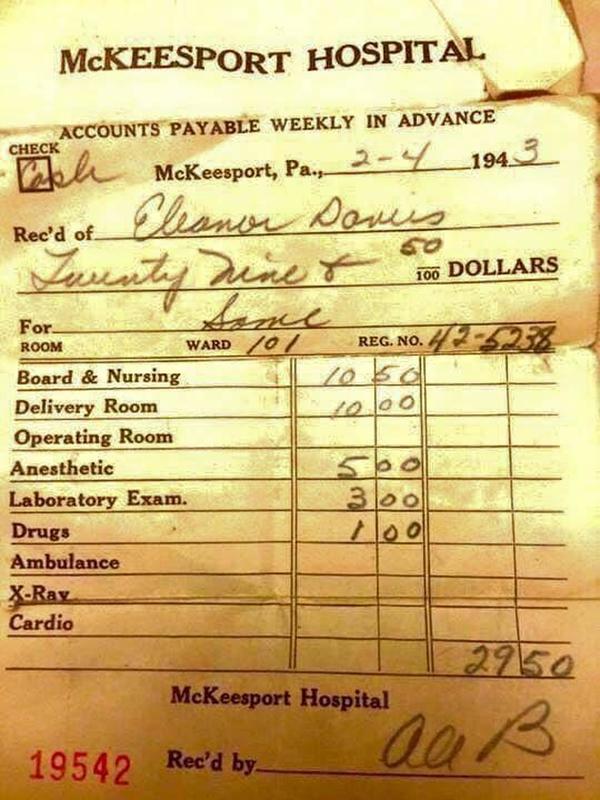 McKEESPORT HOSPITAL
ACCOUNTS PAYABLE WEEKLY IN ADVANCE
CHECK
Cash McKeesport, Pa., 2-4 1943
Rec'd of Eleanor Davies
Twenty Nine & 50/100 DOLLARS
For Same
ROOM WARD 101 REG. NO. 42-5238
Board & Nursing 10 50
Delivery Room 10 00
Operating Room
Anesthetic 5 00
Laboratory Exam. 3 00
Drugs 1 00
Ambulance
X-Ray
Cardio
29 50
McKeesport Hospital
19542 Rec'd by